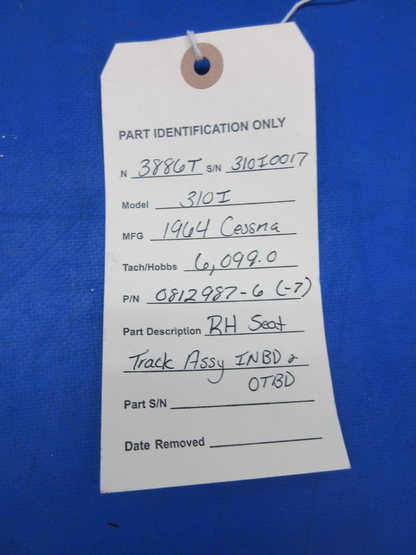 PART IDENTIFICATION ONLY
N 3886T S/N 310I0017
Model 310I
MFG 1964 Cessna
Tach/Hobbs 6,099.0
P/N 0812987-6 (-7)
Part Description RH Seat
Track Assy INBD &
OTBD
Part S/N
Date Removed